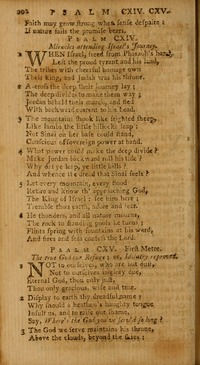 202 PSALM CXIV. CXV.
Faith may grow strong when sense despairs;
If nature fails the promise bears.
PSALM CXIV.
Miracles attending Israel's Journey.
WHEN Israel, freed from Pharaoh's hand,
Left the proud tyrant and his land,
The tribes with cheerful homage own
Their King, and Judah was his throne.
2 Across the deep their journey lay;
The deep divides to make them way;
Jordan beheld their march, and fled
With backward current to his head.
3 The mountains shook like frighted sheep,
Like lambs the little hillocks leap;
Not Sinai on her base could stand,
Conscious of sovereign power at hand.
4 What power could make the deep divide?
Make Jordan backward roll his tide?
Why did ye leap, ye little hills?
And whence the dread that Sinai feels?
5 Let every mountain, every flood
Retire and know th' approaching God,
The King of Israel: see him here;
Tremble thou earth, adore and fear.
6 He thunders, and all nature mourns,
The rock to standing pools he turns;
Flints spring with fountains at his word,
And fires and seas confess the Lord.
PSALM CXV. First Metre.
The true God our Refuge; or, Idolatry reproved.
NOT to ourselves, who are but dust,
Not to ourselves is glory due,
Eternal God, thou only just,
Thou only gracious, wise and true.
2 Display to earth thy dreadful name;
Why should a heathen's haughty tongue
Insult us, and to raise our shame,
Say, Where's the God you've serv'd so long?
3 The God we serve maintains his throne,
Above the clouds, beyond the skies;